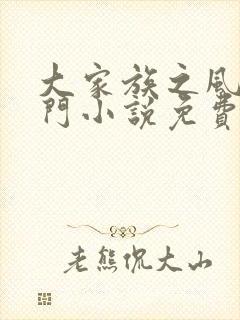 大家族之風
門小說免費
老熊侃大山